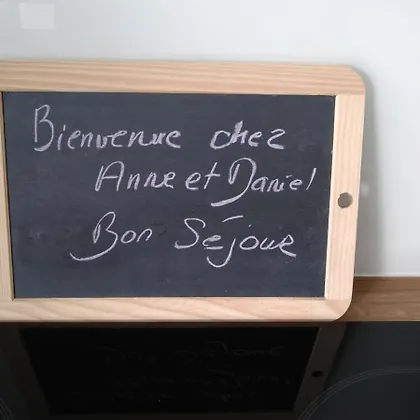 Bienvenue chez
Anne et Daniel
Bon Séjour